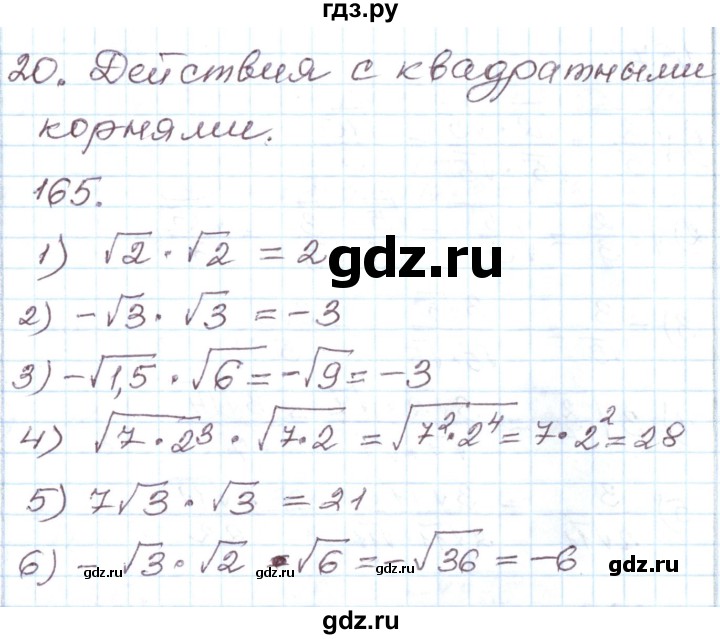 гдз.ру
20. Действия с квадратными
корнями.
165.
1) √2 · √2 = 2
gdz.ru
2) -√3 · √3 = -3
3) -√1,5 · √6 = -√9 = -3
4) √7·2³ · √7·2 = √7²·2⁴ = 7·2² = 28
5) 7√3 · √3 = 21
6) -√3 · √2 · √6 = -√36 = -6
gdz.ru gdz.ru gdz.ru gdz.ru gdz.ru
gdz.ru